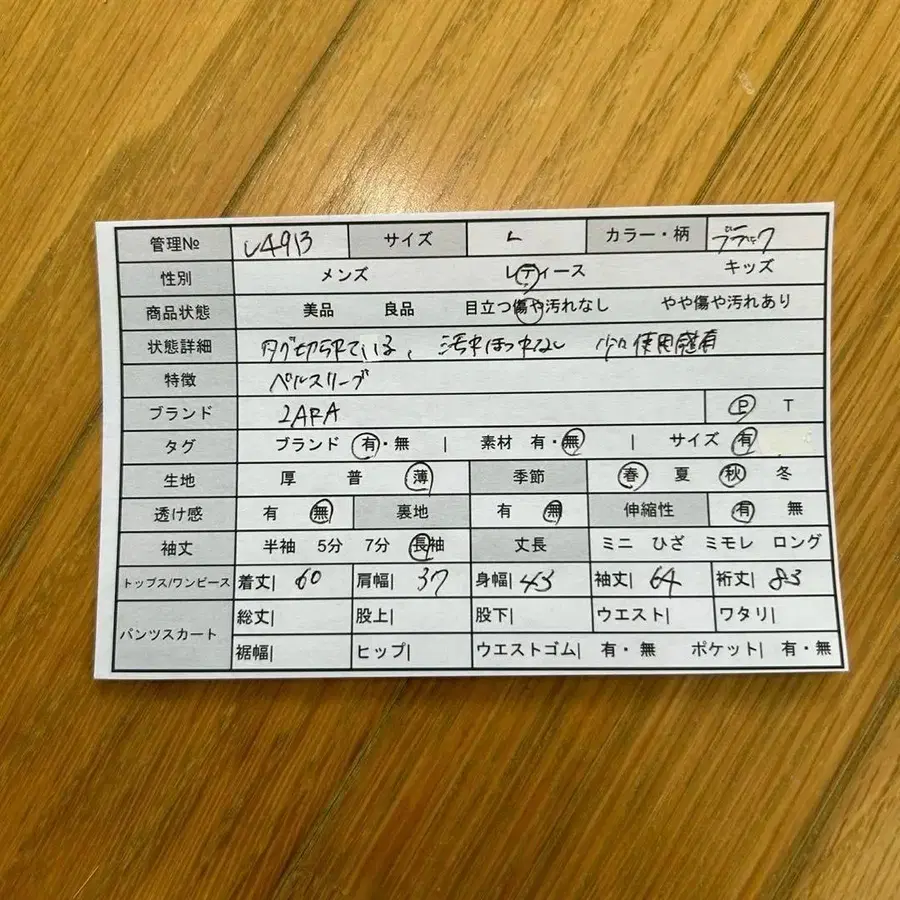 管理№ U4913 サイズ L カラー・柄 ブラック
性別 メンズ レディース キッズ
商品状態 美品 良品 目立つ傷や汚れなし やや傷や汚れあり
状態詳細 タグ切られている、 少々使用感有
特徴 ベルスリーブ
ブランド ZARA P T
タグ ブランド 有・無 | 素材 有・無 | サイズ 有
生地 厚 普 薄 季節 春 夏 秋 冬
透け感 有 無 裏地 有 無 伸縮性 有 無
袖丈 半袖 5分 7分 長袖 丈長 ミニ ひざ ミモレ ロング
トップス/ワンピース 着丈| 60 肩幅| 37 身幅| 43 袖丈| 64 裄丈| 83
パンツスカート 総丈| 股上| 股下| ウエスト| ワタリ|
裾幅| ヒップ| ウエストゴム| 有・無 ポケット| 有・無